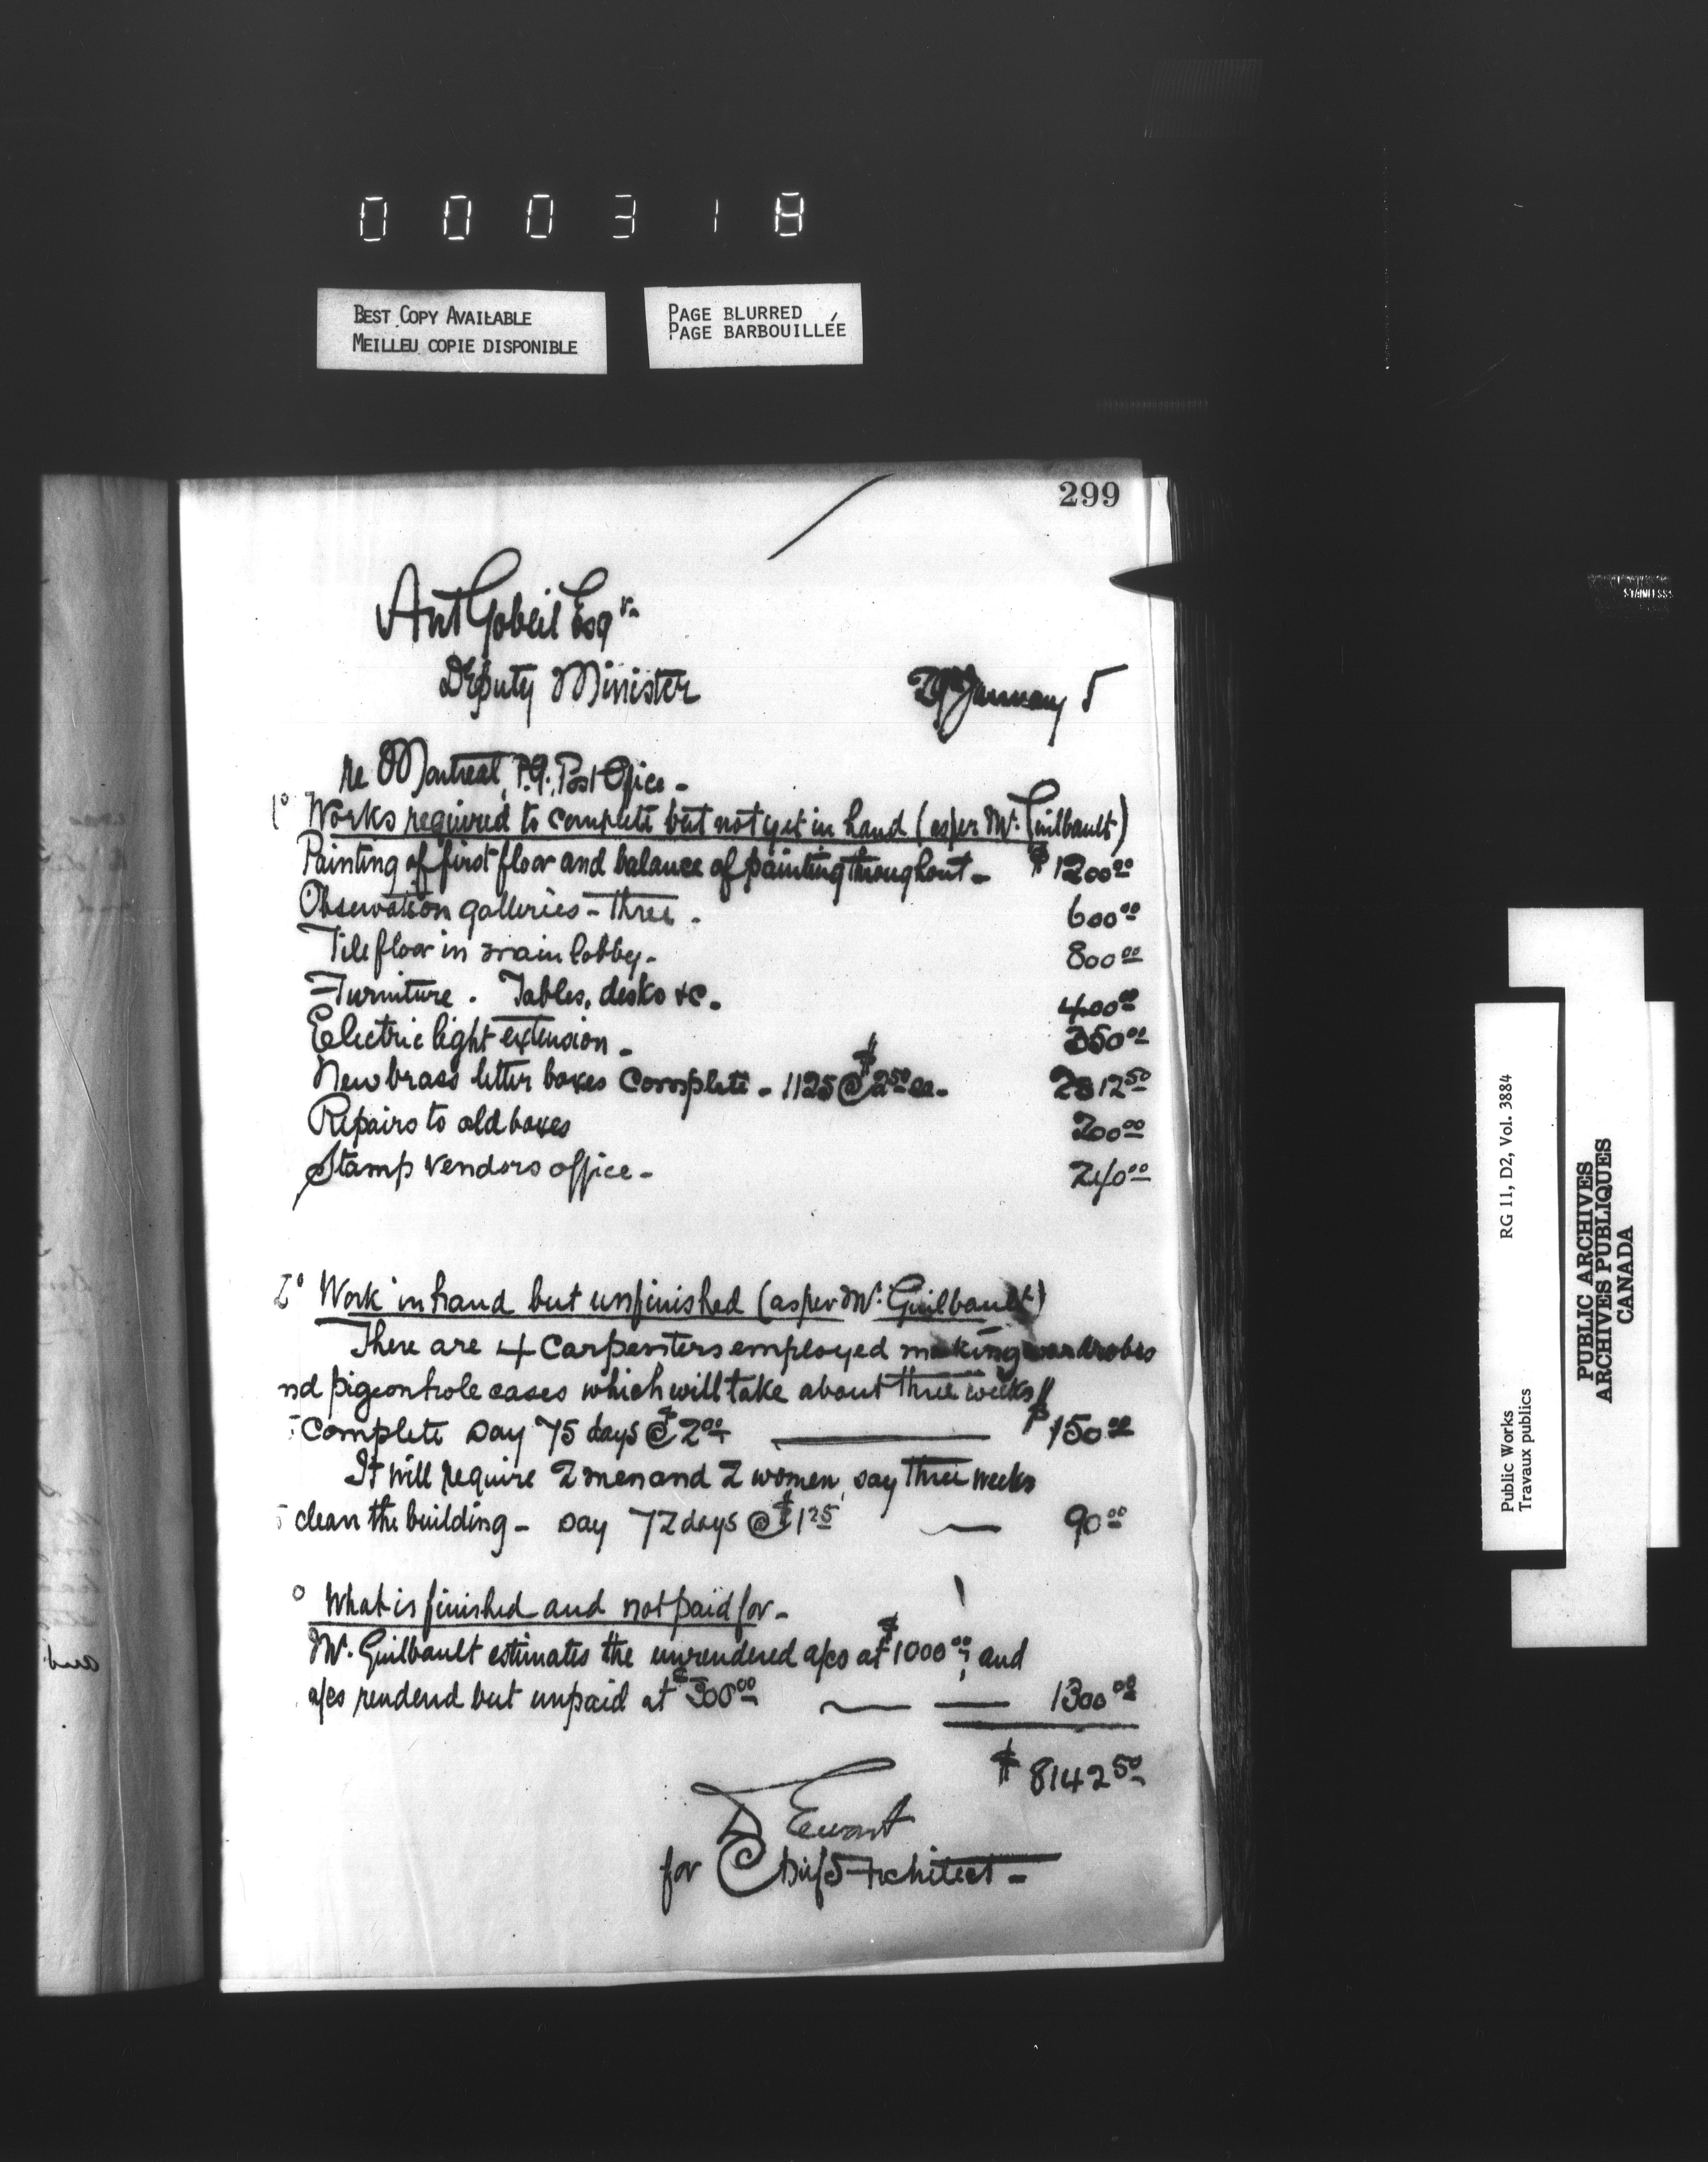 000318
BEST COPY AVAILABLE
MEILLEU COPIE DISPONIBLE
PAGE BLURRED
PAGE BARBOUILLÉE
299
Ant Gobeil Esqr.
Deputy Minister
29th January 5
re Montreal, P.Q. Post Office -
1° Works required to complete but not yet in hand (as per Mr. Guilbault)
Painting of first floor and balance of painting throughout - $ 1200 00
Observation galleries - three . 600 00
Tile floor in main lobby - 800 00
Furniture . Tables, desks &c. 400 00
Electric light extension - 350 00
New brass letter boxes complete - 1125 @ $2 50 ea. 2812 50
Repairs to old boxes 200 00
Stamp vendors office - 240 00
2° Work in hand but unfinished (as per Mr. Guilbault)
There are 4 carpenters employed making wardrobes
nd pigeonhole cases which will take about three weeks
complete say 75 days @ $2 00 $ 150 00
It will require 2 men and 2 women, say three weeks
clean the building - say 72 days @ $1 25 90 00
° What is finished and not paid for -
Mr. Guilbault estimates the unrendered a/cs at $1000 00; and
a/cs rendered but unpaid at $300 00 1300 00
$ 8142 50
D Ewart
for Chief Architect -
Public Works RG 11, D2, Vol. 3884
Travaux publics
PUBLIC ARCHIVES
ARCHIVES PUBLIQUES
CANADA
STAINLESS